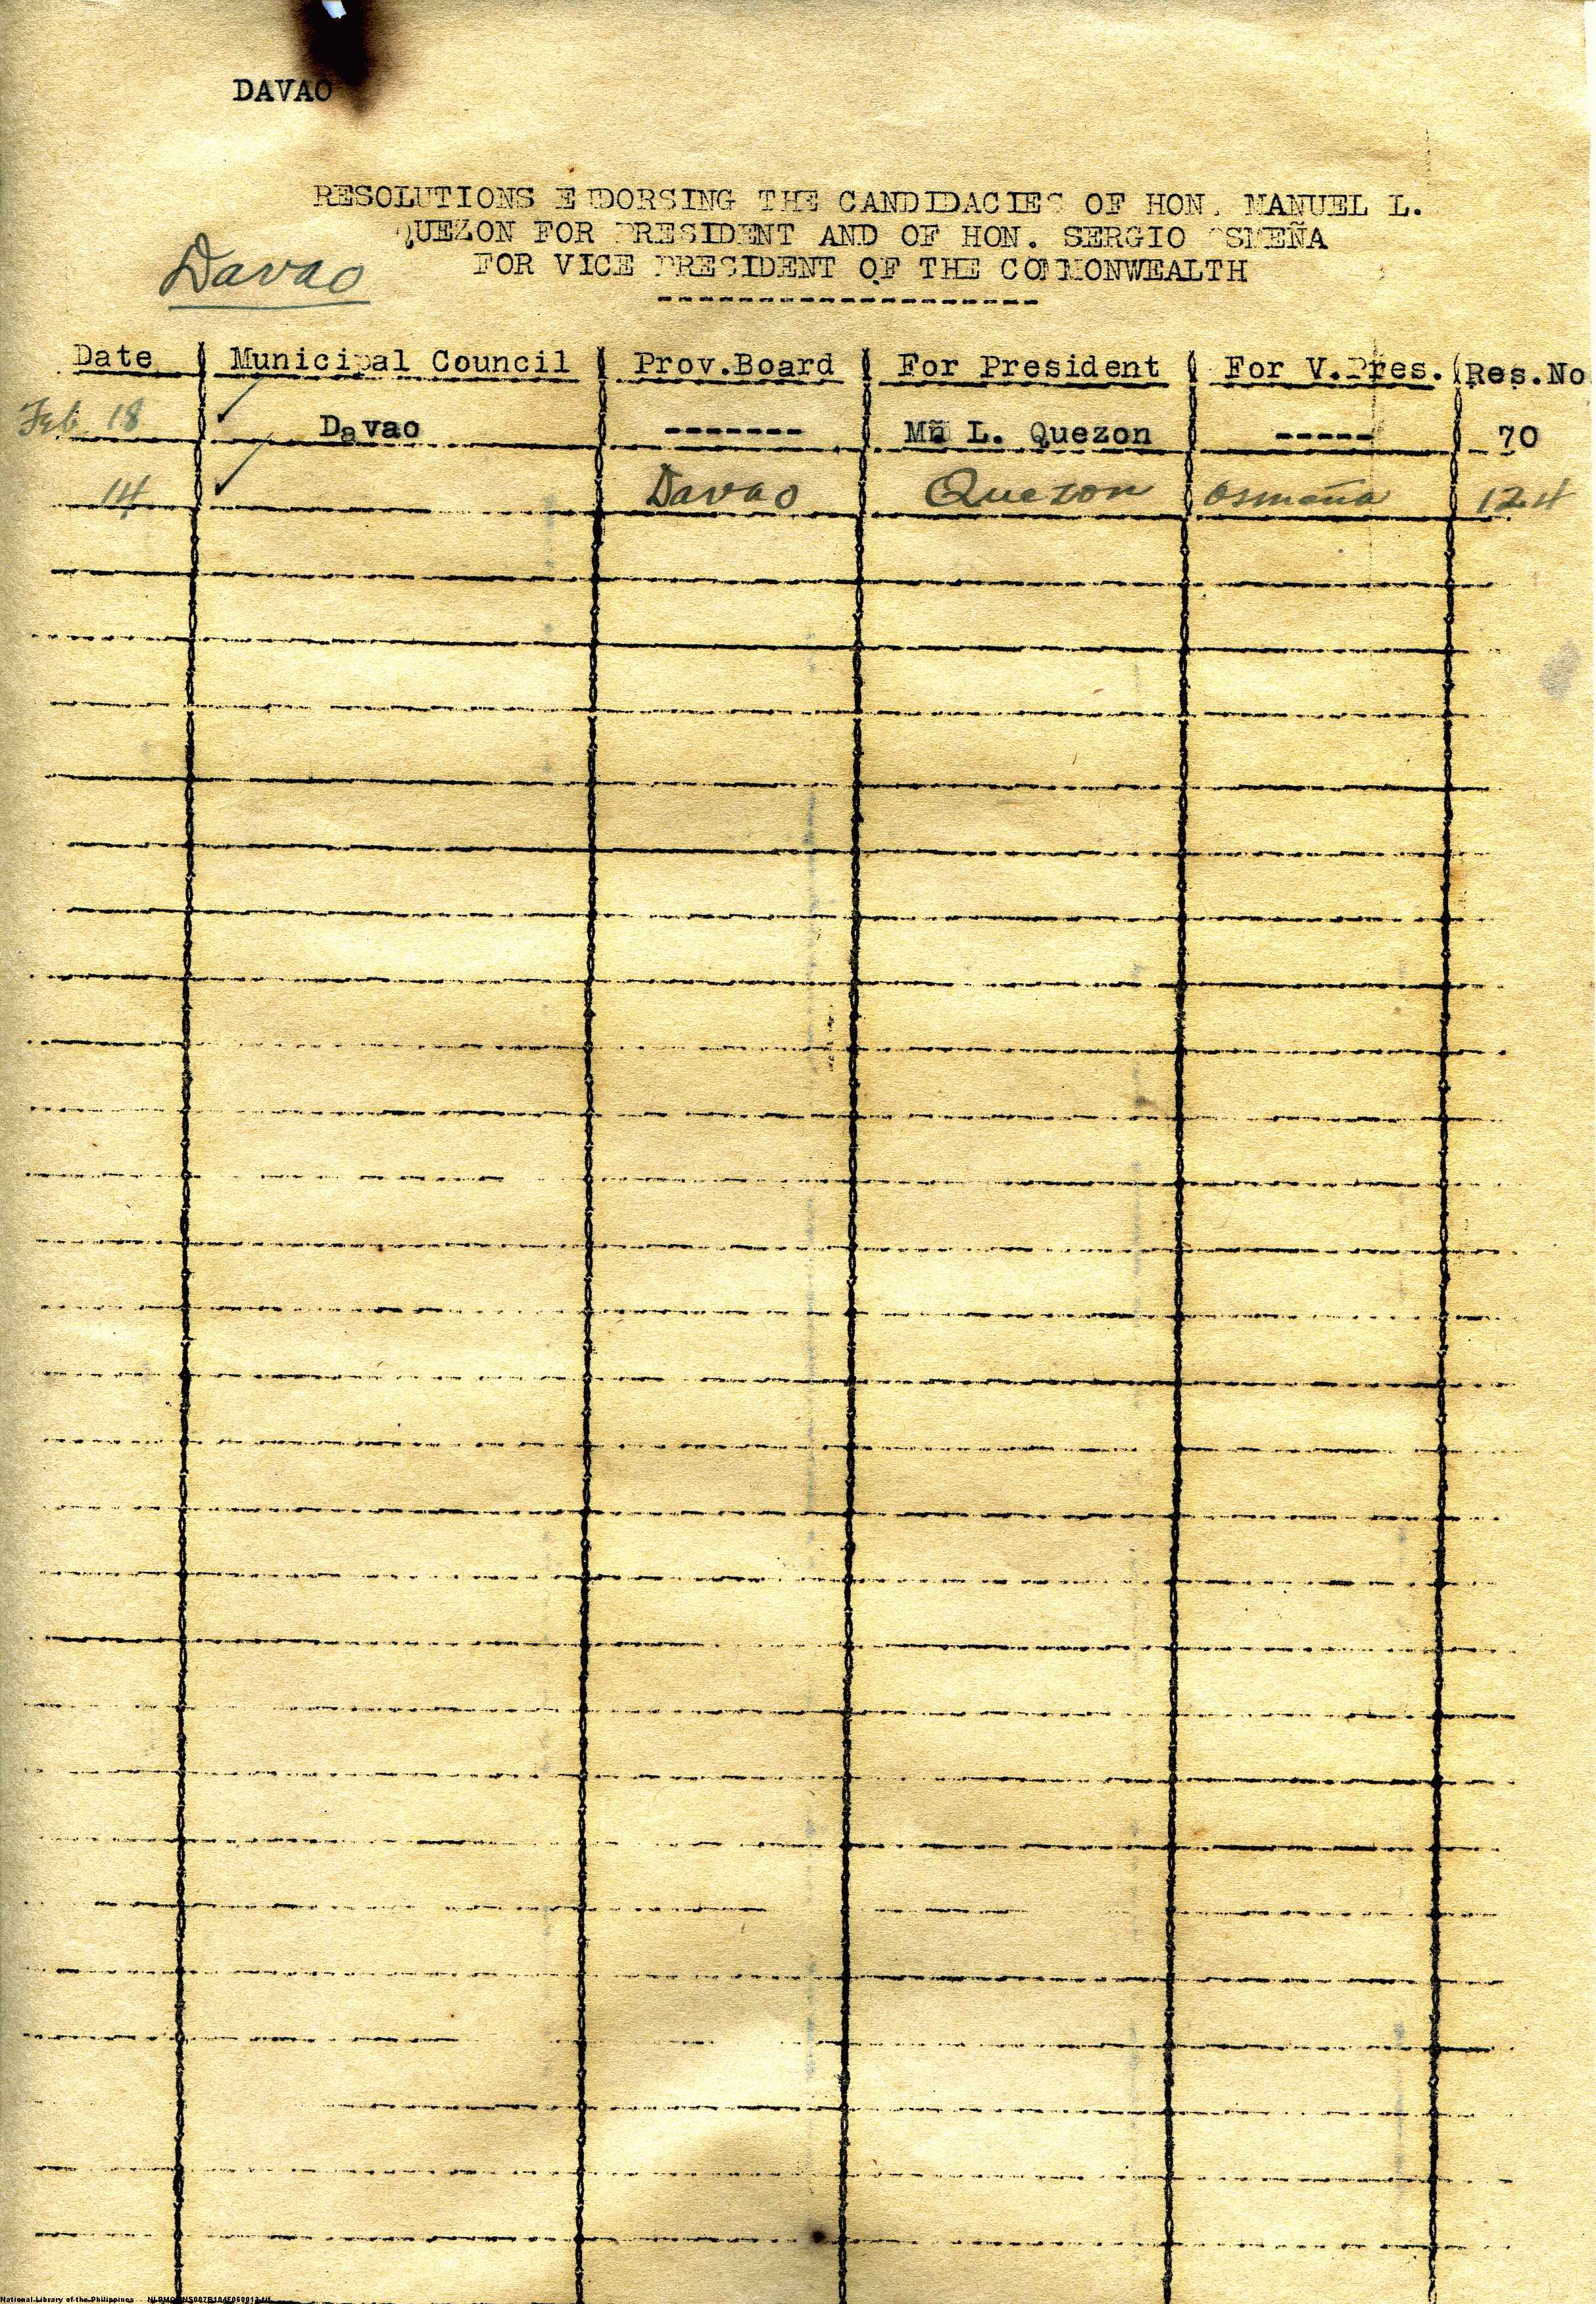 DAVAO
RESOLUTIONS ENDORSING THE CANDIDACIES OF HON. MANUEL L.
QUEZON FOR PRESIDENT AND OF HON. SERGIO OSMEÑA
FOR VICE PRESIDENT OF THE COMMONWEALTH
Davao
Date | Municipal Council | Prov.Board | For President | For V.Pres. | Res.No
Feb. 18 Davao ------- Ml L. Quezon ----- 70
14 Davao Quezon Osmeña 124
National Library of the Philippines